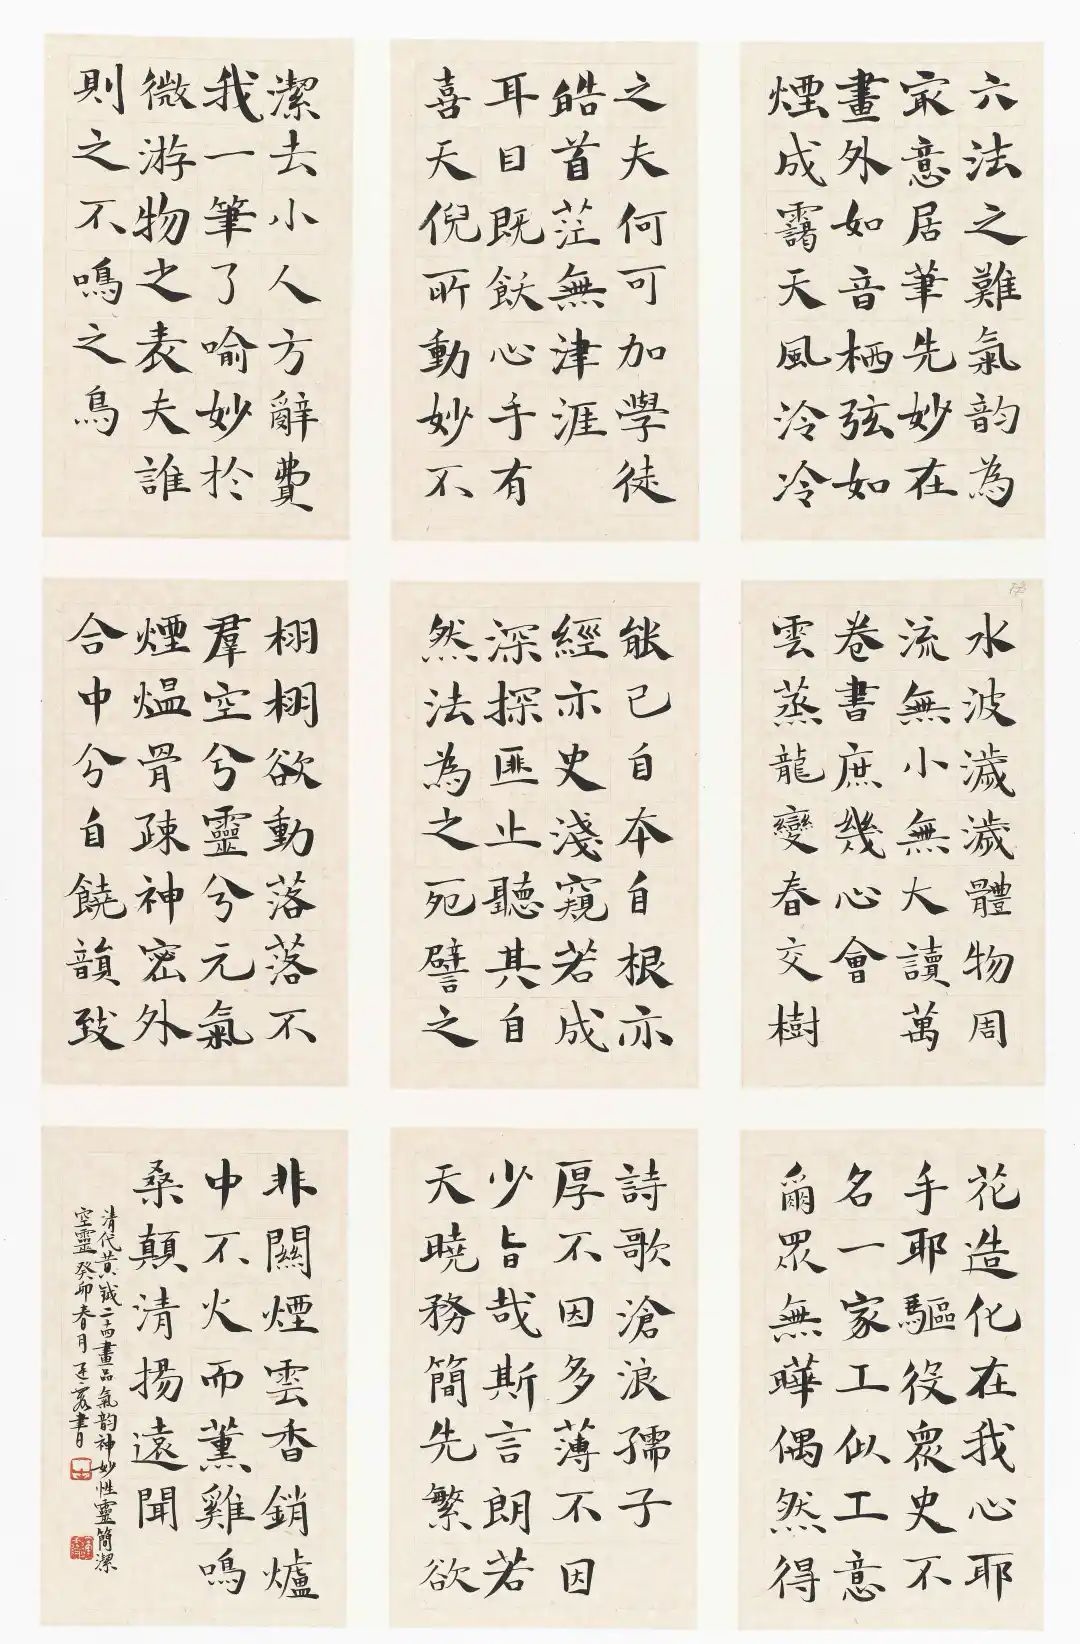 六法之難氣韵為
冣意居筆先妙在
畫外如音栖弦如
煙成靄天風泠泠
水波濊濊體物周
流無小無大讀萬
卷書庶幾心會
雲蒸龍變春交樹
花造化在我心耶
手耶驅役眾史不
名一家工似工意
爾眾無嘩偶然得
之夫何可加學徒
皓首茫無津涯
耳目既飫心手有
喜天倪所動妙不
能已自本自根亦
經亦史淺窺若成
深探匪止聽其自
然法為之死譬之
詩歌滄浪孺子
厚不因多薄不因
少旨哉斯言朗若
天曉務簡先繁欲
潔去小人方辭費
我一筆了喻妙於
微游物之表夫誰
則之不鳴之鳥
栩栩欲動落落不
羣空兮靈兮元氣
煙熅骨疎神密外
合中分自饒韻致
非關煙雲香銷爐
中不火而薰雞鳴
桑顛清揚遠聞
清代黃鉞二十四畫品氣韵神妙性靈簡潔
空靈癸卯春月書